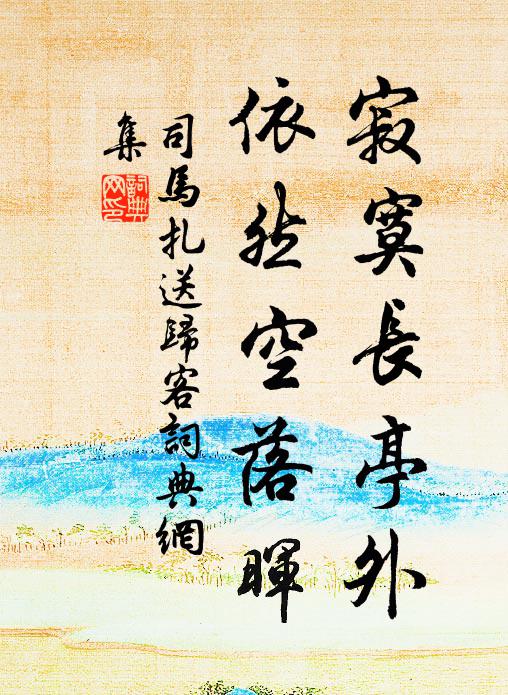 寂寞長亭外
依然空落暉
司馬扎送歸客詞典網
集
詞典
网印